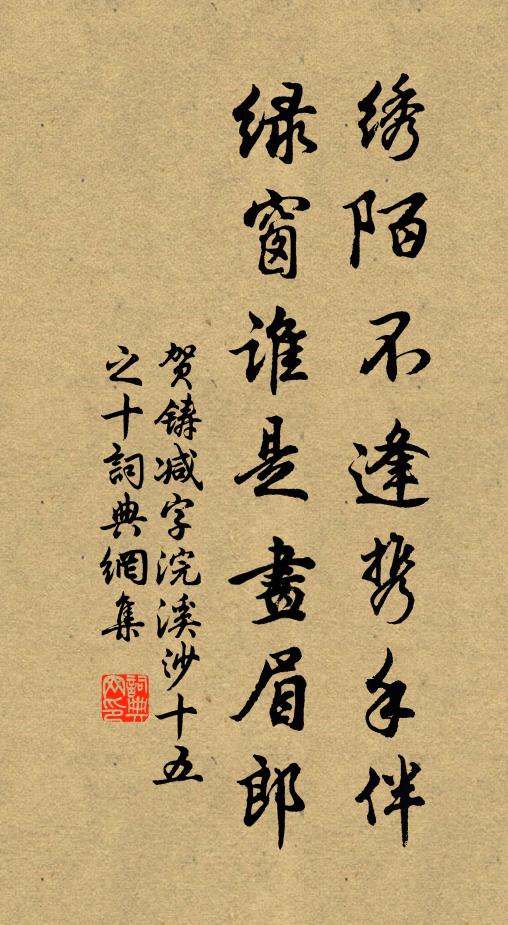 绣陌不逢携手伴
绿窗谁是畫眉郎
贺铸减字浣溪沙十五
之十詞典網集
詞典
网印